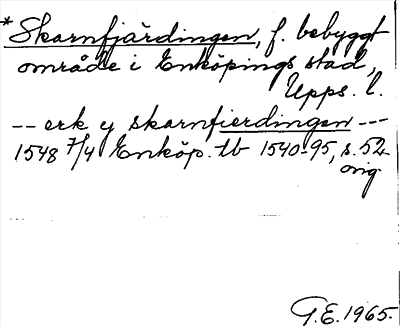 * Skarnfjärdingen, f. bebyggt
område i Enköpings stad,
Upps. l.
-- erk y skarnfierdingen ---
1548 7/4 Enköp. tb 1540-95, s. 52
orig
G.E. 1965.